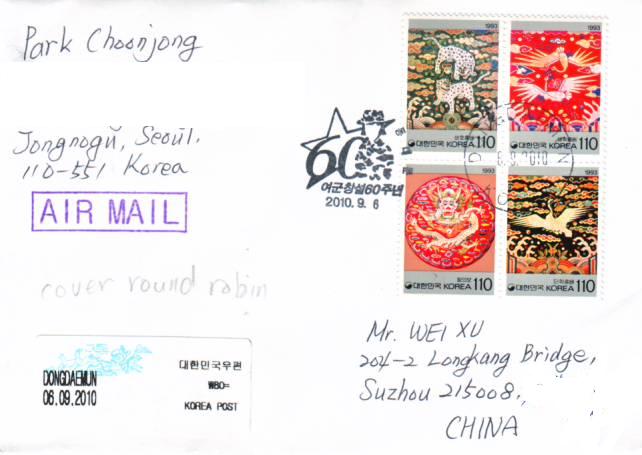 Park Choonjong
Jongnogu, Seoul.
110-551 Korea
AIR MAIL
cover round robin
대한민국우편
DONGDAEMUN
06.09.2010
KOREA POST
60
여군창설60주년
2010. 9. 6
1993
대한민국 KOREA 110
1993
대한민국 KOREA 110
1993
대한민국 KOREA 110
1993
대한민국 KOREA 110
Mr. WEI XU
204-2 Longkang Bridge,
Suzhou 215008.
CHINA